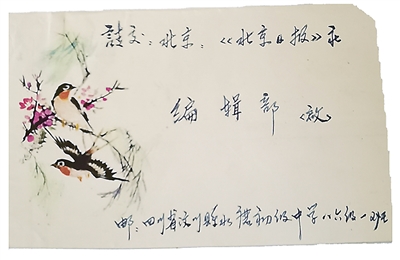 请交：北京：《《北京日报》社
编辑部 <收>
邮：四川省汶川县水磨初级中学八六级一班